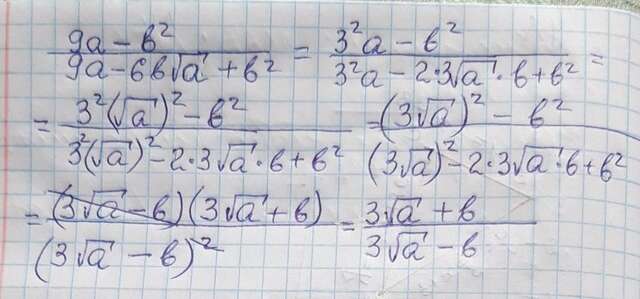 (9a - b²)/(9a - 6b√a + b²) = (3²a - b²)/(3²a - 2·3√a·b + b²) =
= (3²(√a)² - b²)/(3²(√a)² - 2·3√a·b + b²) = ((3√a)² - b²)/((3√a)² - 2·3√a·b + b²)
= ((3√a - b)(3√a + b))/((3√a - b)²) = (3√a + b)/(3√a - b)